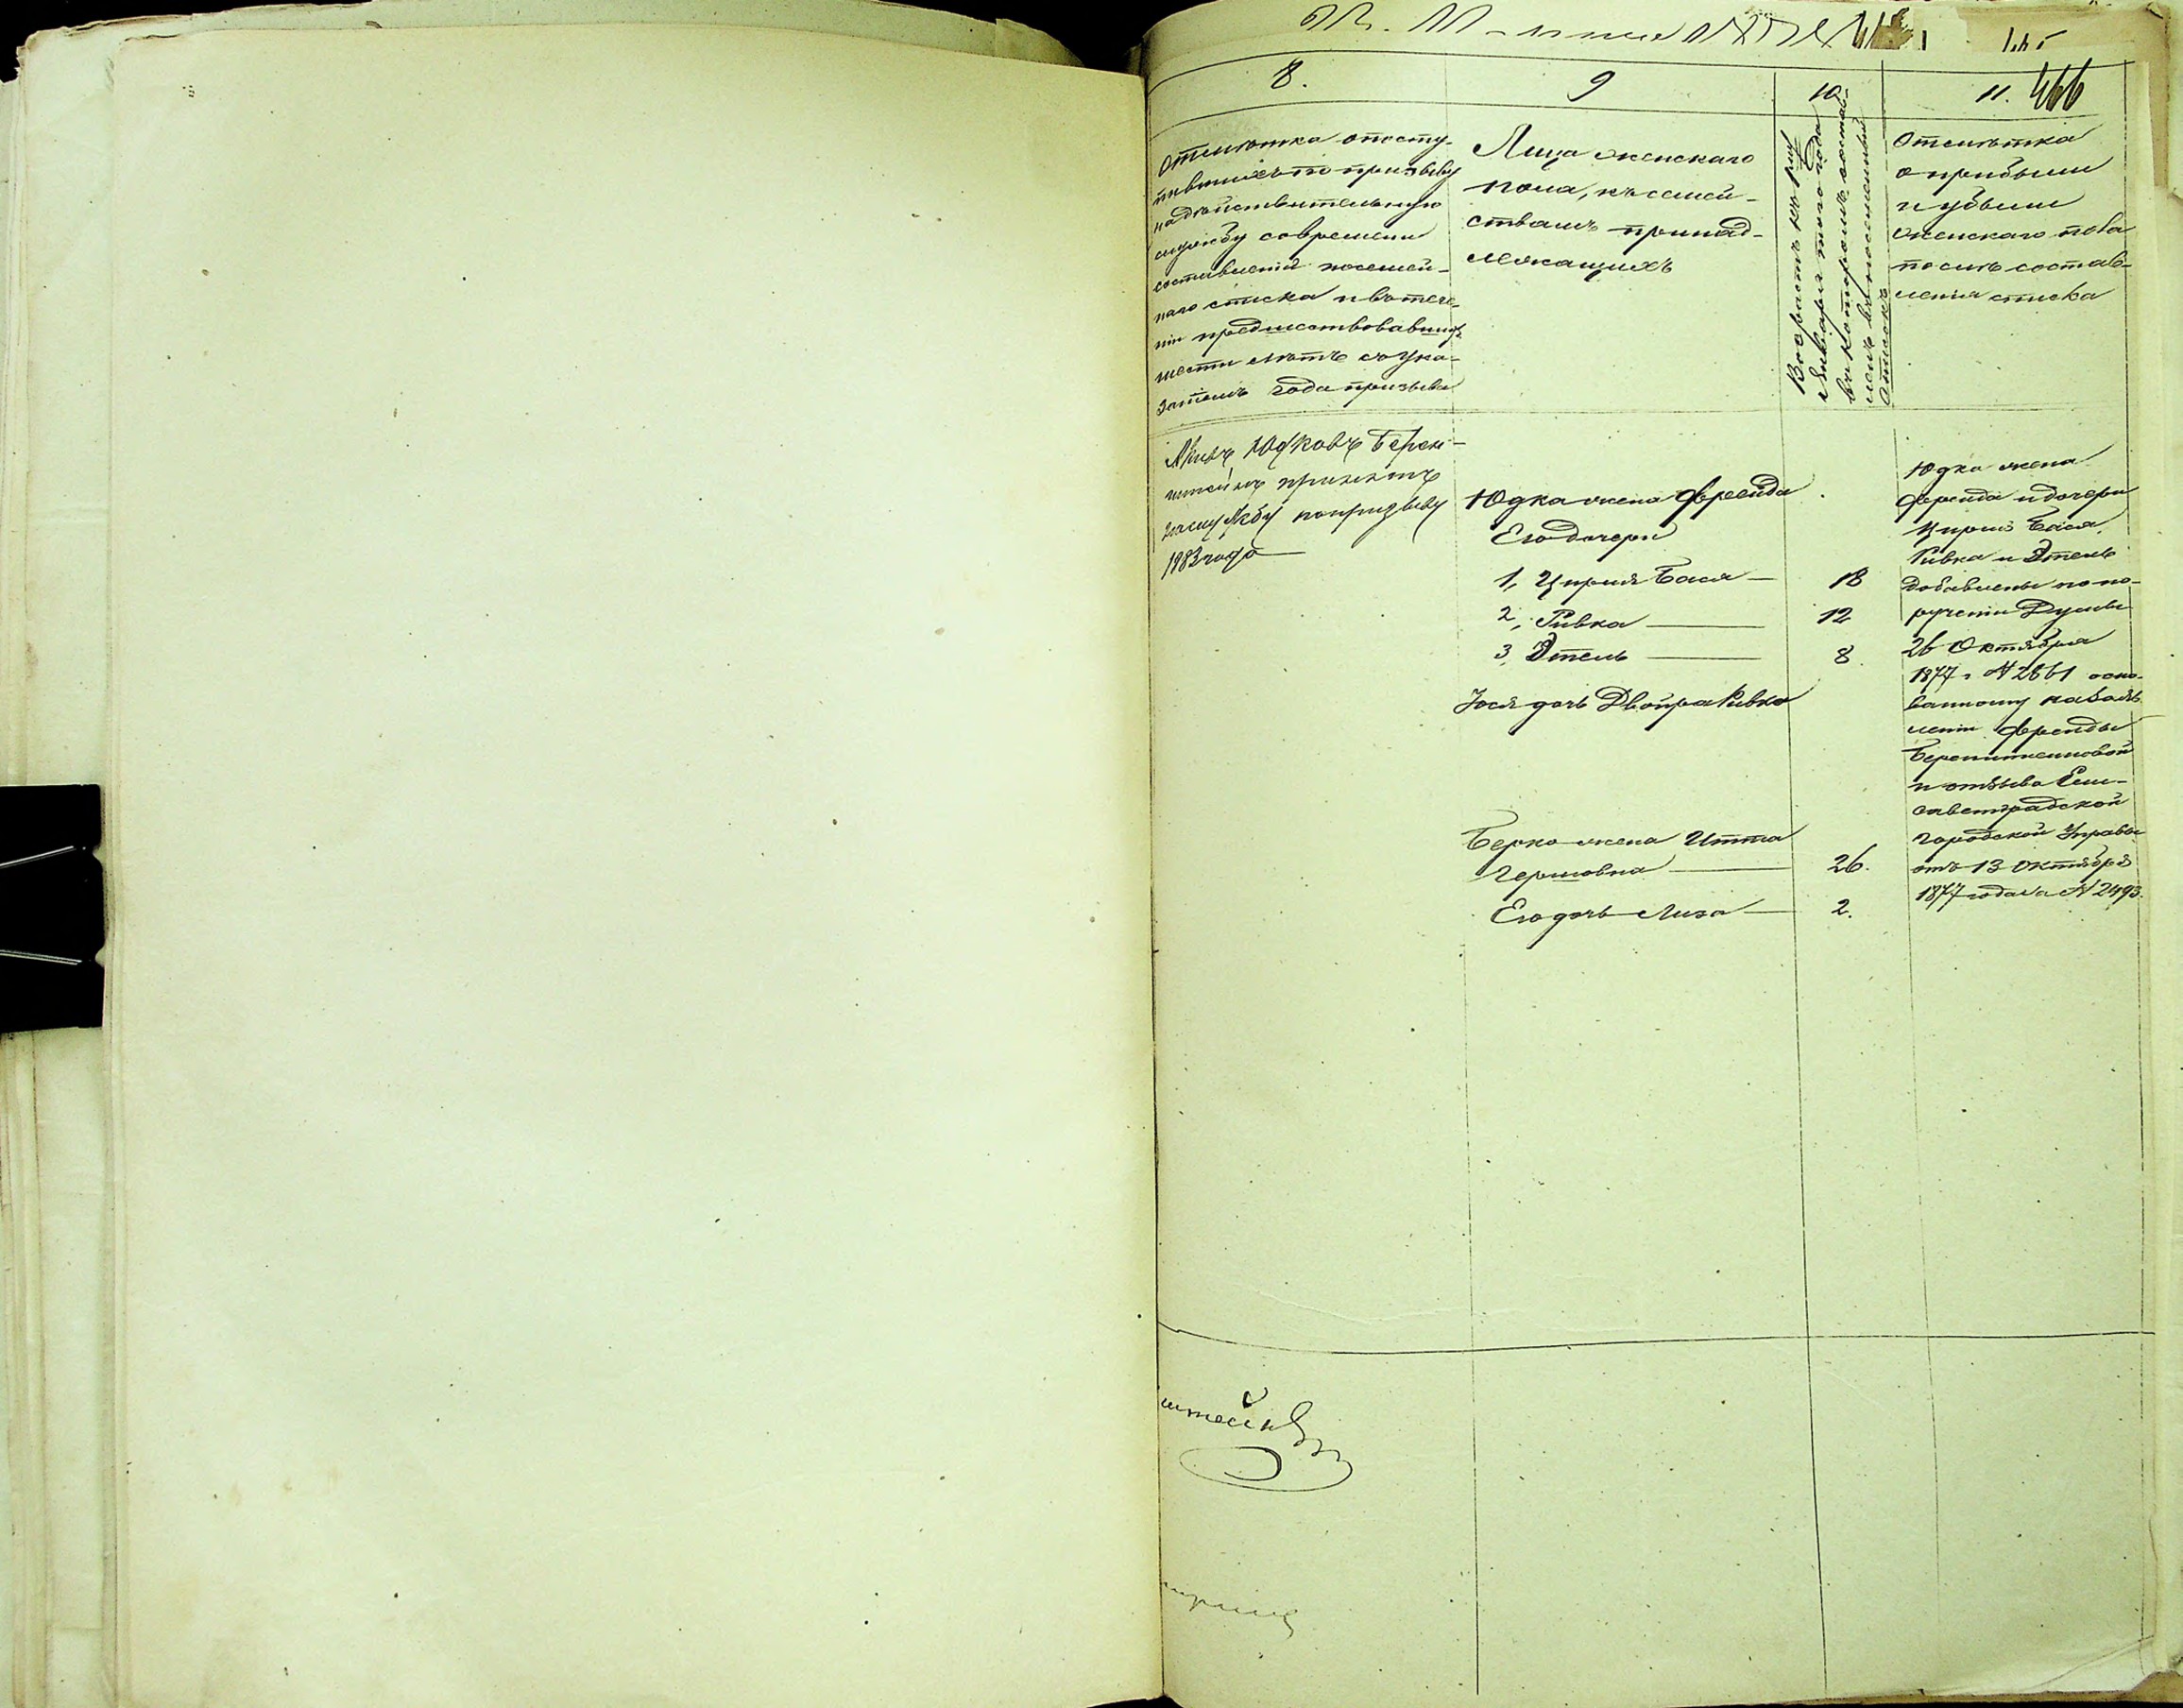 8.
9
10
11. 466
Отмѣтка о посту-
пившихъ по призыву
на дѣйствительную
службу со времени
составленія посемей-
наго списка и въ тече-
ніи предшествовавшихъ
шести лѣтъ съ ука-
заніемъ года призыва
Лица женскаго
пола, къ семей-
ствамъ принад-
лежащихъ
Возрастъ къ 1му
Января того года
въ которомъ состав-
ленъ посемейный
списокъ
Отмѣтка
о прибыли
и убыли
женскаго пола
послѣ состав-
ленія списка
Юдковъ Берен-
штейнъ принятъ
на службу по призыву
1883 года
Юдка жена Фрейда
Его дочери
1, Ципря Бася — 18
2, Ривка — 12
3, Этель — 8
Іося дочь Двойра Ривка
Берко жена Итта
Гершовна — 26.
Его дочь Лиза — 2.
Юдка жена
Фрейда и дочери
Ципря Бася,
Ривка и Этель
добавлены по по-
рученію Думы
26 Октября
1877 г № 2661 осно-
ванному на заяв-
леніи Фрейды
Беренштейновой
и отзыва Ели-
саветградской
Городской Управы
отъ 13 Октября
1877 года за № 2493.
штейнъ